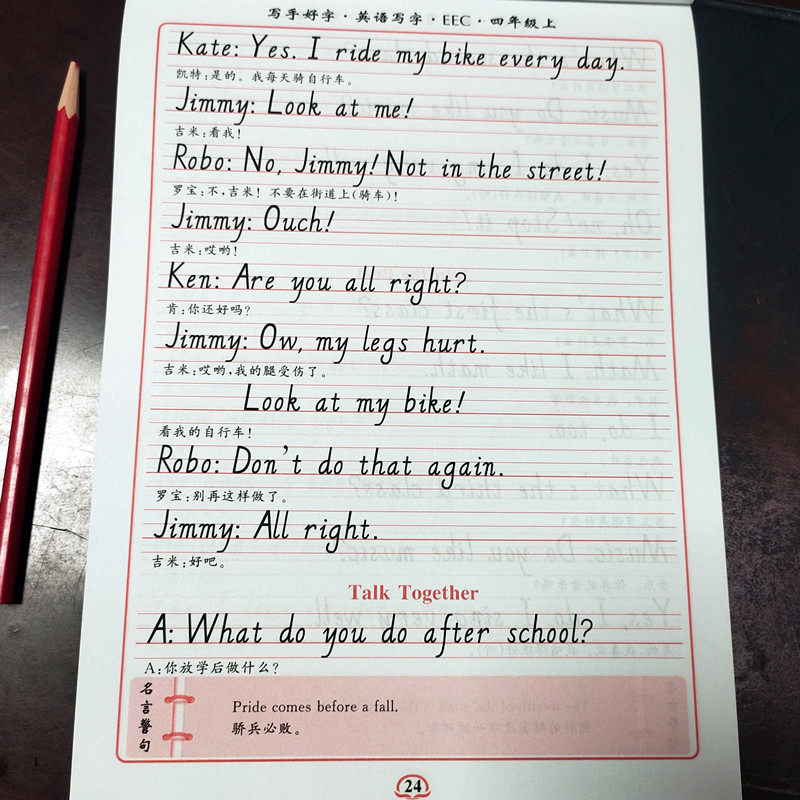 写手好字·英语写字·EEC·四年级上
Kate: Yes. I ride my bike every day.
凯特:是的。我每天骑自行车。
Jimmy: Look at me!
吉米:看我!
Robo: No, Jimmy! Not in the street!
罗宝:不,吉米! 不要在街道上(骑车)!
Jimmy: Ouch!
吉米:哎哟!
Ken: Are you all right?
肯:你还好吗?
Jimmy: Ow, my legs hurt.
吉米:哎哟,我的腿受伤了。
Look at my bike!
看我的自行车!
Robo: Don't do that again.
罗宝:别再这样做了。
Jimmy: All right.
吉米:好吧。
Talk Together
A: What do you do after school?
A:你放学后做什么?
名言警句
Pride comes before a fall.
骄兵必败。
24